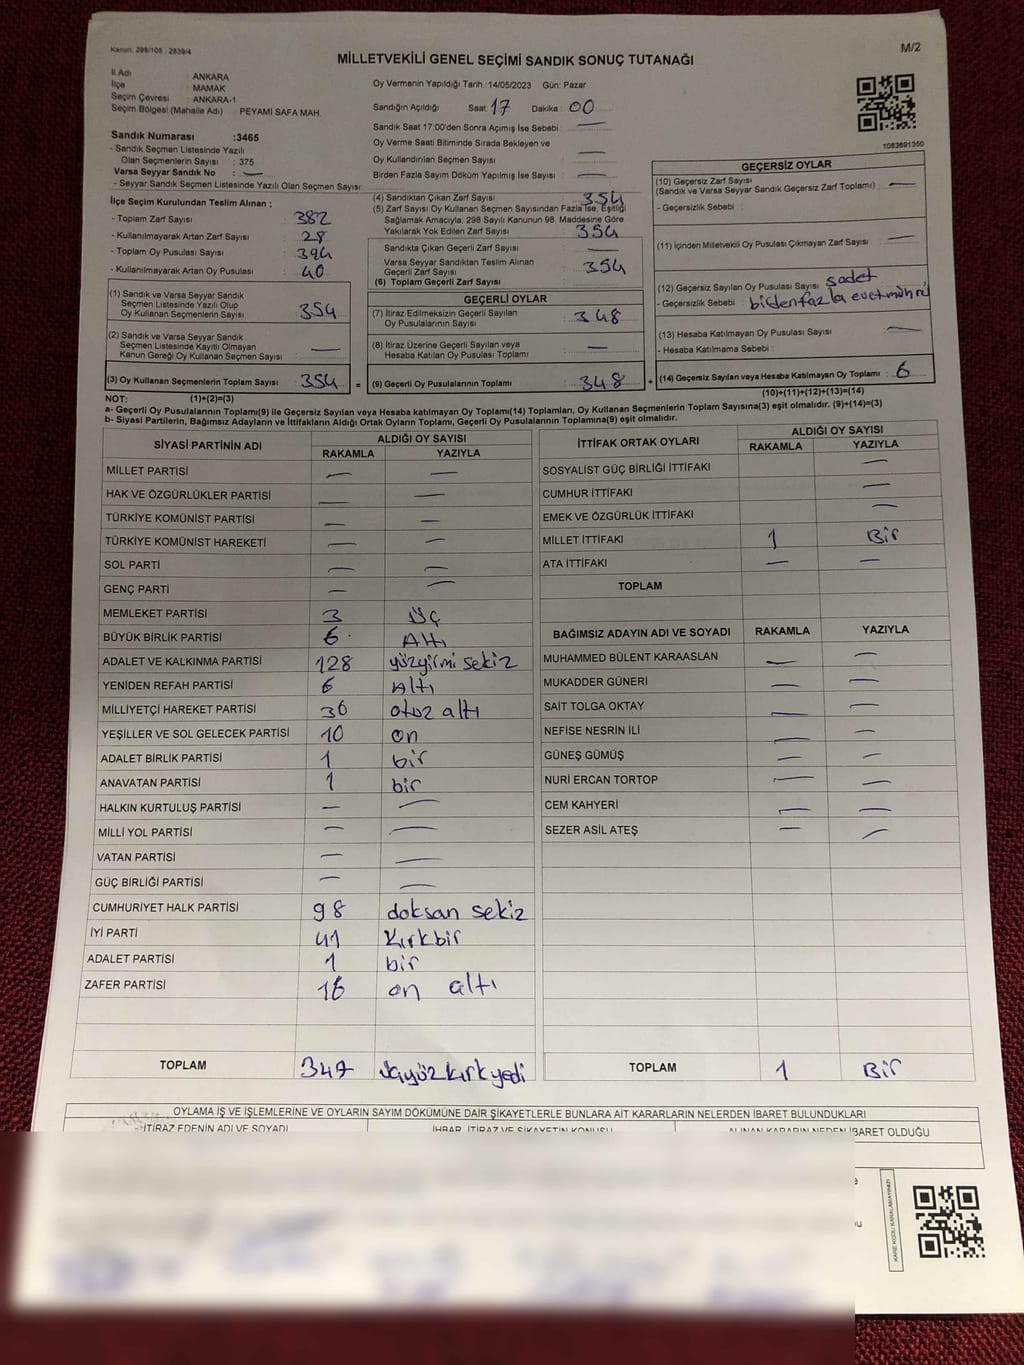 Kanun: 298/105 : 2839/4
M/2
MİLLETVEKİLİ GENEL SEÇİMİ SANDIK SONUÇ TUTANAĞI
İl Adı : ANKARA
İlçe : MAMAK
Seçim Çevresi : ANKARA-1
Seçim Bölgesi (Mahalle Adı) : PEYAMİ SAFA MAH.
Oy Vermenin Yapıldığı Tarih :14/05/2023 Gün: Pazar
Sandığın Açıldığı Saat: 17 Dakika : 00
Sandık Saat 17:00'den Sonra Açımış İse Sebebi : —
Oy Verme Saati Bitiminde Sırada Bekleyen ve
Oy Kullandırılan Seçmen Sayısı : —
Birden Fazla Sayım Döküm Yapılmış İse Sayısı : —
1083691350
Sandık Numarası :3465
- Sandık Seçmen Listesinde Yazılı
Olan Seçmenlerin Sayısı : 375
Varsa Seyyar Sandık No : —
- Seyyar Sandık Seçmen Listesinde Yazılı Olan Seçmen Sayısı:
İlçe Seçim Kurulundan Teslim Alınan ;
- Toplam Zarf Sayısı : 382
- Kullanılmayarak Artan Zarf Sayısı : 28
- Toplam Oy Pusulası Sayısı : 394
- Kullanılmayarak Artan Oy Pusulası : 40
(1) Sandık ve Varsa Seyyar Sandık
Seçmen Listesinde Yazılı Olup
Oy Kullanan Seçmenlerin Sayısı : 354
(2) Sandık ve Varsa Seyyar Sandık
Seçmen Listesinde Kayıtlı Olmayan
Kanun Gereği Oy Kullanan Seçmen Sayısı : —
(3) Oy Kullanan Seçmenlerin Toplam Sayısı : 354
(4) Sandıktan Çıkan Zarf Sayısı : 354
(5) Zarf Sayısı Oy Kullanan Seçmen Sayısından Fazla İse, Eşitliği
Sağlamak Amacıyla, 298 Sayılı Kanunun 98. Maddesine Göre
Yakılarak Yok Edilen Zarf Sayısı : 354
Sandıkta Çıkan Geçerli Zarf Sayısı : —
Varsa Seyyar Sandıktan Teslim Alınan
Geçerli Zarf Sayısı : 354
(6) Toplam Geçerli Zarf Sayısı :
GEÇERLİ OYLAR
(7) İtiraz Edilmeksizin Geçerli Sayılan
Oy Pusulalarının Sayısı : 348
(8) İtiraz Üzerine Geçerli Sayılan veya
Hesaba Katılan Oy Pusulası Toplamı : —
= (9) Geçerli Oy Pusulalarının Toplamı : 348
GEÇERSİZ OYLAR
(10) Geçersiz Zarf Sayısı
(Sandık ve Varsa Seyyar Sandık Geçersiz Zarf Toplamı) : —
- Geçersizlik Sebebi :
(11) İçinden Milletvekili Oy Pusulası Çıkmayan Zarf Sayısı : —
(12) Geçersiz Sayılan Oy Pusulası Sayısı : 6 adet
- Geçersizlik Sebebi : birden fazla evet mührü
(13) Hesaba Katılmayan Oy Pusulası Sayısı : —
- Hesaba Katılmama Sebebi :
+ (14) Geçersiz Sayılan veya Hesaba Katılmayan Oy Toplamı : 6
NOT: (1)+(2)=(3)
(10)+(11)+(12)+(13)=(14)
a- Geçerli Oy Pusulalarının Toplamı(9) ile Geçersiz Sayılan veya Hesaba katılmayan Oy Toplamı(14) Toplamları, Oy Kullanan Seçmenlerin Toplam Sayısına(3) eşit olmalıdır. (9)+(14)=(3)
b- Siyasi Partilerin, Bağımsız Adayların ve İttifakların Aldığı Ortak Oyların Toplamı, Geçerli Oy Pusulalarının Toplamına(9) eşit olmalıdır.
SİYASİ PARTİNİN ADI ALDIĞI OY SAYISI
RAKAMLA YAZIYLA
MİLLET PARTİSİ — —
HAK VE ÖZGÜRLÜKLER PARTİSİ — —
TÜRKİYE KOMÜNİST PARTİSİ — —
TÜRKİYE KOMÜNİST HAREKETİ — —
SOL PARTİ — —
GENÇ PARTİ — —
MEMLEKET PARTİSİ 3 üç
BÜYÜK BİRLİK PARTİSİ 6 Altı
ADALET VE KALKINMA PARTİSİ 128 yüzyirmi sekiz
YENİDEN REFAH PARTİSİ 6 Altı
MİLLİYETÇİ HAREKET PARTİSİ 36 otuz altı
YEŞİLLER VE SOL GELECEK PARTİSİ 10 on
ADALET BİRLİK PARTİSİ 1 bir
ANAVATAN PARTİSİ 1 bir
HALKIN KURTULUŞ PARTİSİ — —
MİLLİ YOL PARTİSİ — —
VATAN PARTİSİ — —
GÜÇ BİRLİĞİ PARTİSİ — —
CUMHURİYET HALK PARTİSİ 98 doksan sekiz
İYİ PARTİ 41 Kırkbir
ADALET PARTİSİ 1 bir
ZAFER PARTİSİ 16 on altı
TOPLAM 347 üçyüzkırkyedi
İTTİFAK ORTAK OYLARI ALDIĞI OY SAYISI
RAKAMLA YAZIYLA
SOSYALİST GÜÇ BİRLİĞİ İTTİFAKI —
CUMHUR İTTİFAKI —
EMEK VE ÖZGÜRLÜK İTTİFAKI —
MİLLET İTTİFAKI 1 Bir
ATA İTTİFAKI — —
TOPLAM
BAĞIMSIZ ADAYIN ADI VE SOYADI RAKAMLA YAZIYLA
MUHAMMED BÜLENT KARAASLAN — —
MUKADDER GÜNERİ — —
SAİT TOLGA OKTAY — —
NEFİSE NESRİN İLİ — —
GÜNEŞ GÜMÜŞ — —
NURİ ERCAN TORTOP — —
CEM KAHYERİ — —
SEZER ASİL ATEŞ — —
TOPLAM 1 Bir
OYLAMA İŞ VE İŞLEMLERİNE VE OYLARIN SAYIM DÖKÜMÜNE DAİR ŞİKAYETLERLE BUNLARA AİT KARARLARIN NELERDEN İBARET BULUNDUKLARI
İTİRAZ EDENİN ADI VE SOYADI İHBAR, İTİRAZ VE ŞİKAYETİN KONUSU ALINAN KARARIN NEDEN İBARET OLDUĞU
KARE KODU KARALAMAYINIZ!